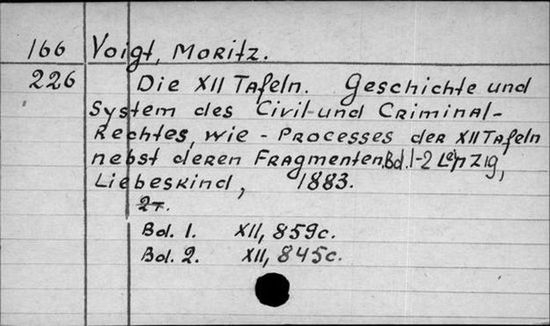 166 Voigt, Moritz.
226 Die XII Tafeln. Geschichte und
System des Civil-und Criminal-
Rechtes, wie - Processes der XII Tafeln
nebst deren Fragmenten. Bd. 1-2 Leipzig,
Liebeskind, 1883.
2т.
Bd. 1. XII, 859c.
Bd. 2. XII, 845c.